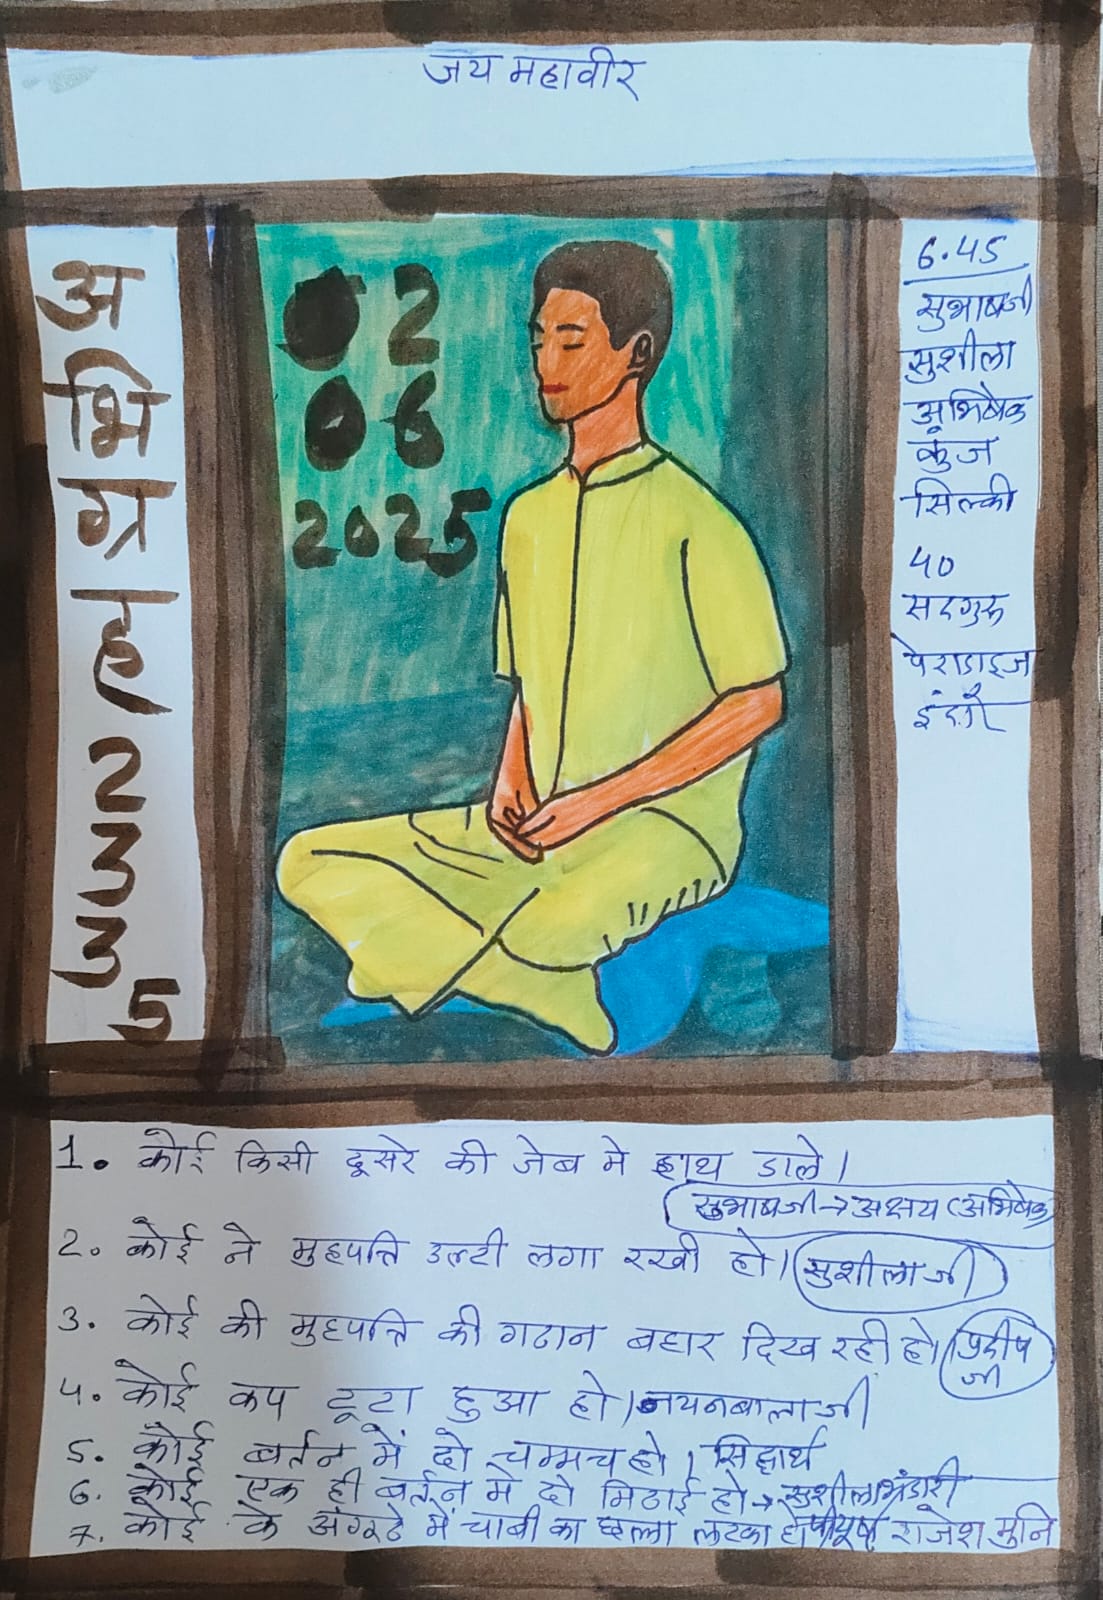 जय महावीर
अ
भि
ग्र
ह
2
3
3
5
02
06
2025
6.45
सुभाषजी
सुशीला
अभिषेक
कुंज
सिल्की
40
सदगुरु
पेराडाइज
इंदौर
1. कोई किसी दूसरे की जेब मे हाथ डाले।
सुभाषजी→अक्षय (अभिषेक)
2. कोई ने मुहपत्ति उल्टी लगा रखी हो। सुशीला जी
3. कोई की मुहपत्ति की गठान बहार दिख रही हो। प्रदीप
जी
4. कोई कप टूटा हुआ हो। नयनबालाजी
5. कोई बर्तन में दो चम्मच हो। सिद्धार्थ
6. कोई एक ही बर्तन मे दो मिठाई हो→सुशीला भंडारी
7. कोई के अंगूठे में चाबी का छल्ला लटका हो पीयूष राजेश मुनि